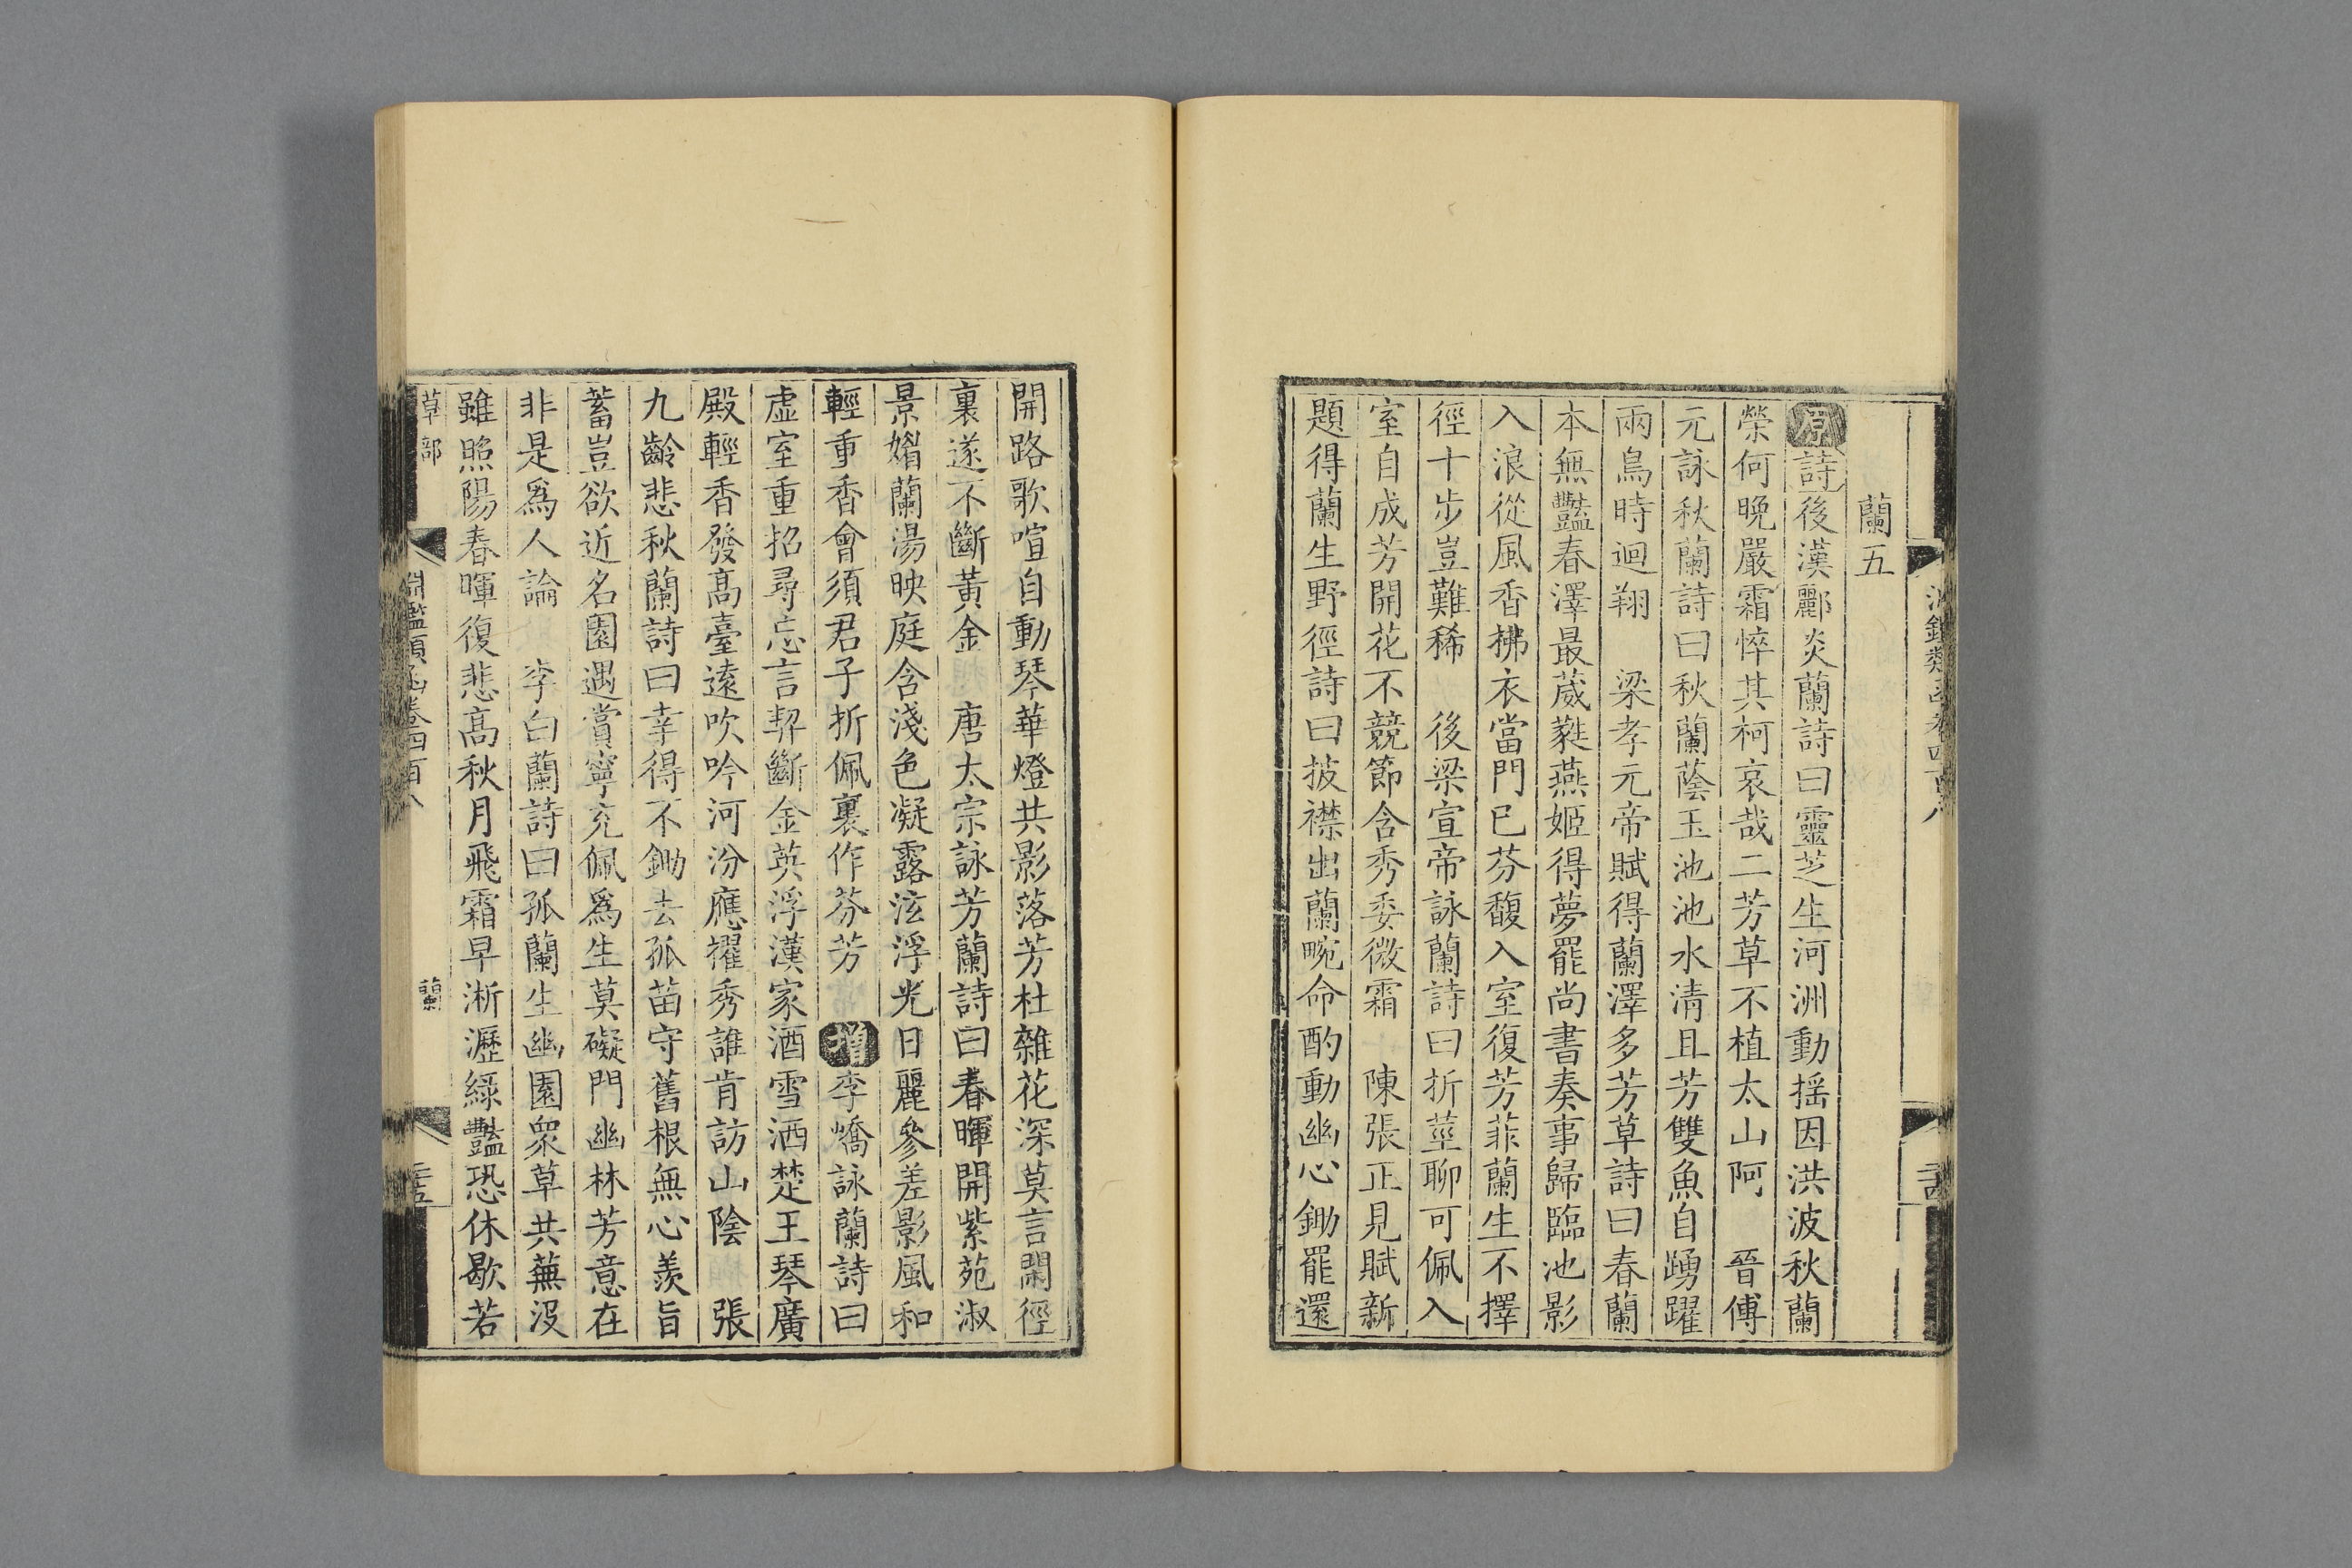 蘭五
原詩後漢酈炎蘭詩曰靈芝生河洲動揺因洪波秋蘭
榮何晚嚴霜悴其柯哀哉二芳草不植太山阿　晉傅
元詠秋蘭詩曰秋蘭蔭玉池池水清且芳雙魚自踴躍
兩鳥時迴翔　梁孝元帝賦得蘭澤多芳草詩曰春蘭
本無豔春澤最葳蕤燕姬得夢罷尚書奏事歸臨池影
入浪從風香拂衣當門已芬馥入室復芳菲蘭生不擇
徑十步豈難稀　後梁宣帝詠蘭詩曰折莖聊可佩入
室自成芳開花不競節含秀委微霜　陳張正見賦新
題得蘭生野徑詩曰披襟出蘭畹命酌動幽心鋤罷還
開路歌喧自動琴華燈共影落芳杜雜花深莫言閑徑
裏遂不斷黃金　唐太宗詠芳蘭詩曰春暉開紫苑淑
景媚蘭湯映庭含淺色凝露泫浮光日麗參差影風和
輕重香會須君子折佩裏作芬芳　增李嶠詠蘭詩曰
虛室重招尋忘言契斷金英浮漢家酒雪洒楚王琴廣
殿輕香發高臺遠吹吟河汾應擢秀誰肯訪山陰　張
九齡悲秋蘭詩曰幸得不鋤去孤苗守舊根無心羨旨
蓄豈欲近名園遇賞寧充佩爲生莫礙門幽林芳意在
非是爲人論　李白蘭詩曰孤蘭生幽園衆草共蕪沒
雖照陽春暉復悲高秋月飛霜早淅瀝綠豔恐休歇若
草部
淵鑑類函卷四百八
蘭
二十五